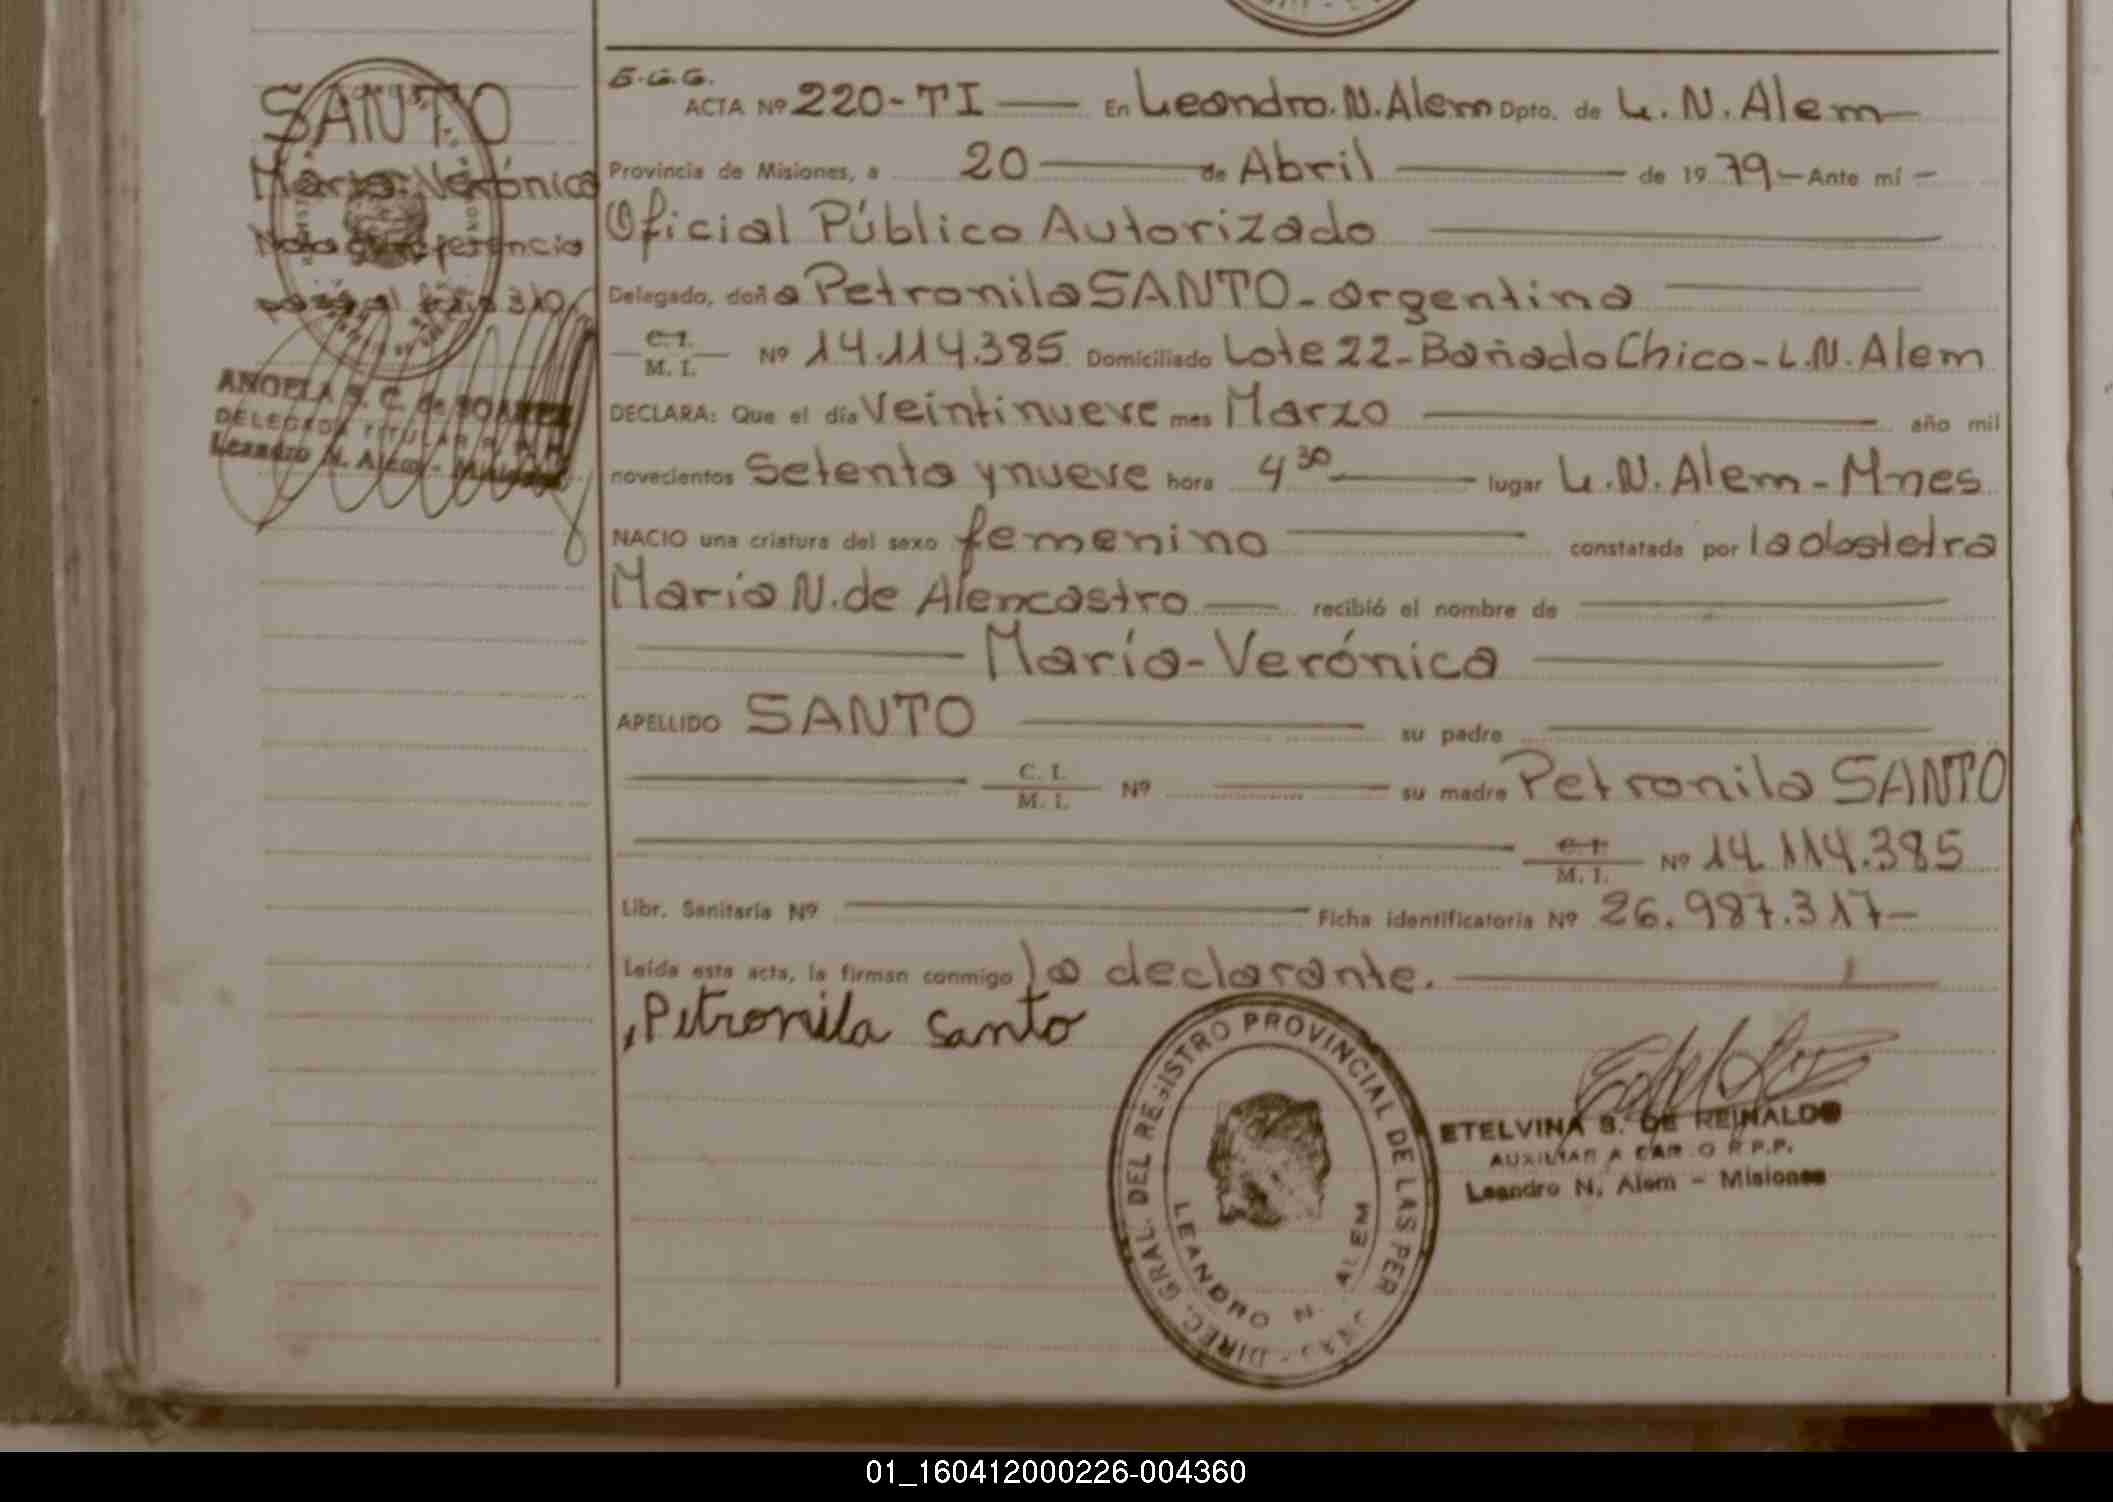 SANTO
María Verónica
Nota de referencia
E.G.G.
ACTA Nº 220-TI En Leandro.N.Alem Dpto. de L.N.Alem
Provincia de Misiones, a 20 de Abril de 1979 Ante mí
Oficial Público Autorizado
Delegado, doña Petronila SANTO - argentina
C.I. M.I. Nº 14.114.385 Domiciliado Lote 22-Bañado Chico-L.N.Alem
DECLARA: Que el día Veintinueve mes Marzo año mil
novecientos Setenta y nueve hora 4 30 lugar L.N.Alem-Mnes
NACIO una criatura del sexo femenino constatada por la obstetra
María N. de Alencastro recibió el nombre de
María-Verónica
APELLIDO SANTO su padre
C.I. M.I. Nº su madre Petronila SANTO
C.I. M.I. Nº 14.114.385
Libr. Sanitaria Nº Ficha identificatoria Nº 26.987.317-
Leída esta acta, la firman conmigo la declarante.
Petronila Santo
ANGELA S. C. de SOAREZ
DELEGADA TITULAR R. P. P.
Leandro N. Alem - Misiones
DIREC. GRAL. DEL REGISTRO PROVINCIAL DE LAS PER
LEANDRO N. ALEM
ETELVINA S. DE REINALDO
AUXILIAR A CARGO R.P.P.
Leandro N. Alem - Misiones
01_160412000226-004360